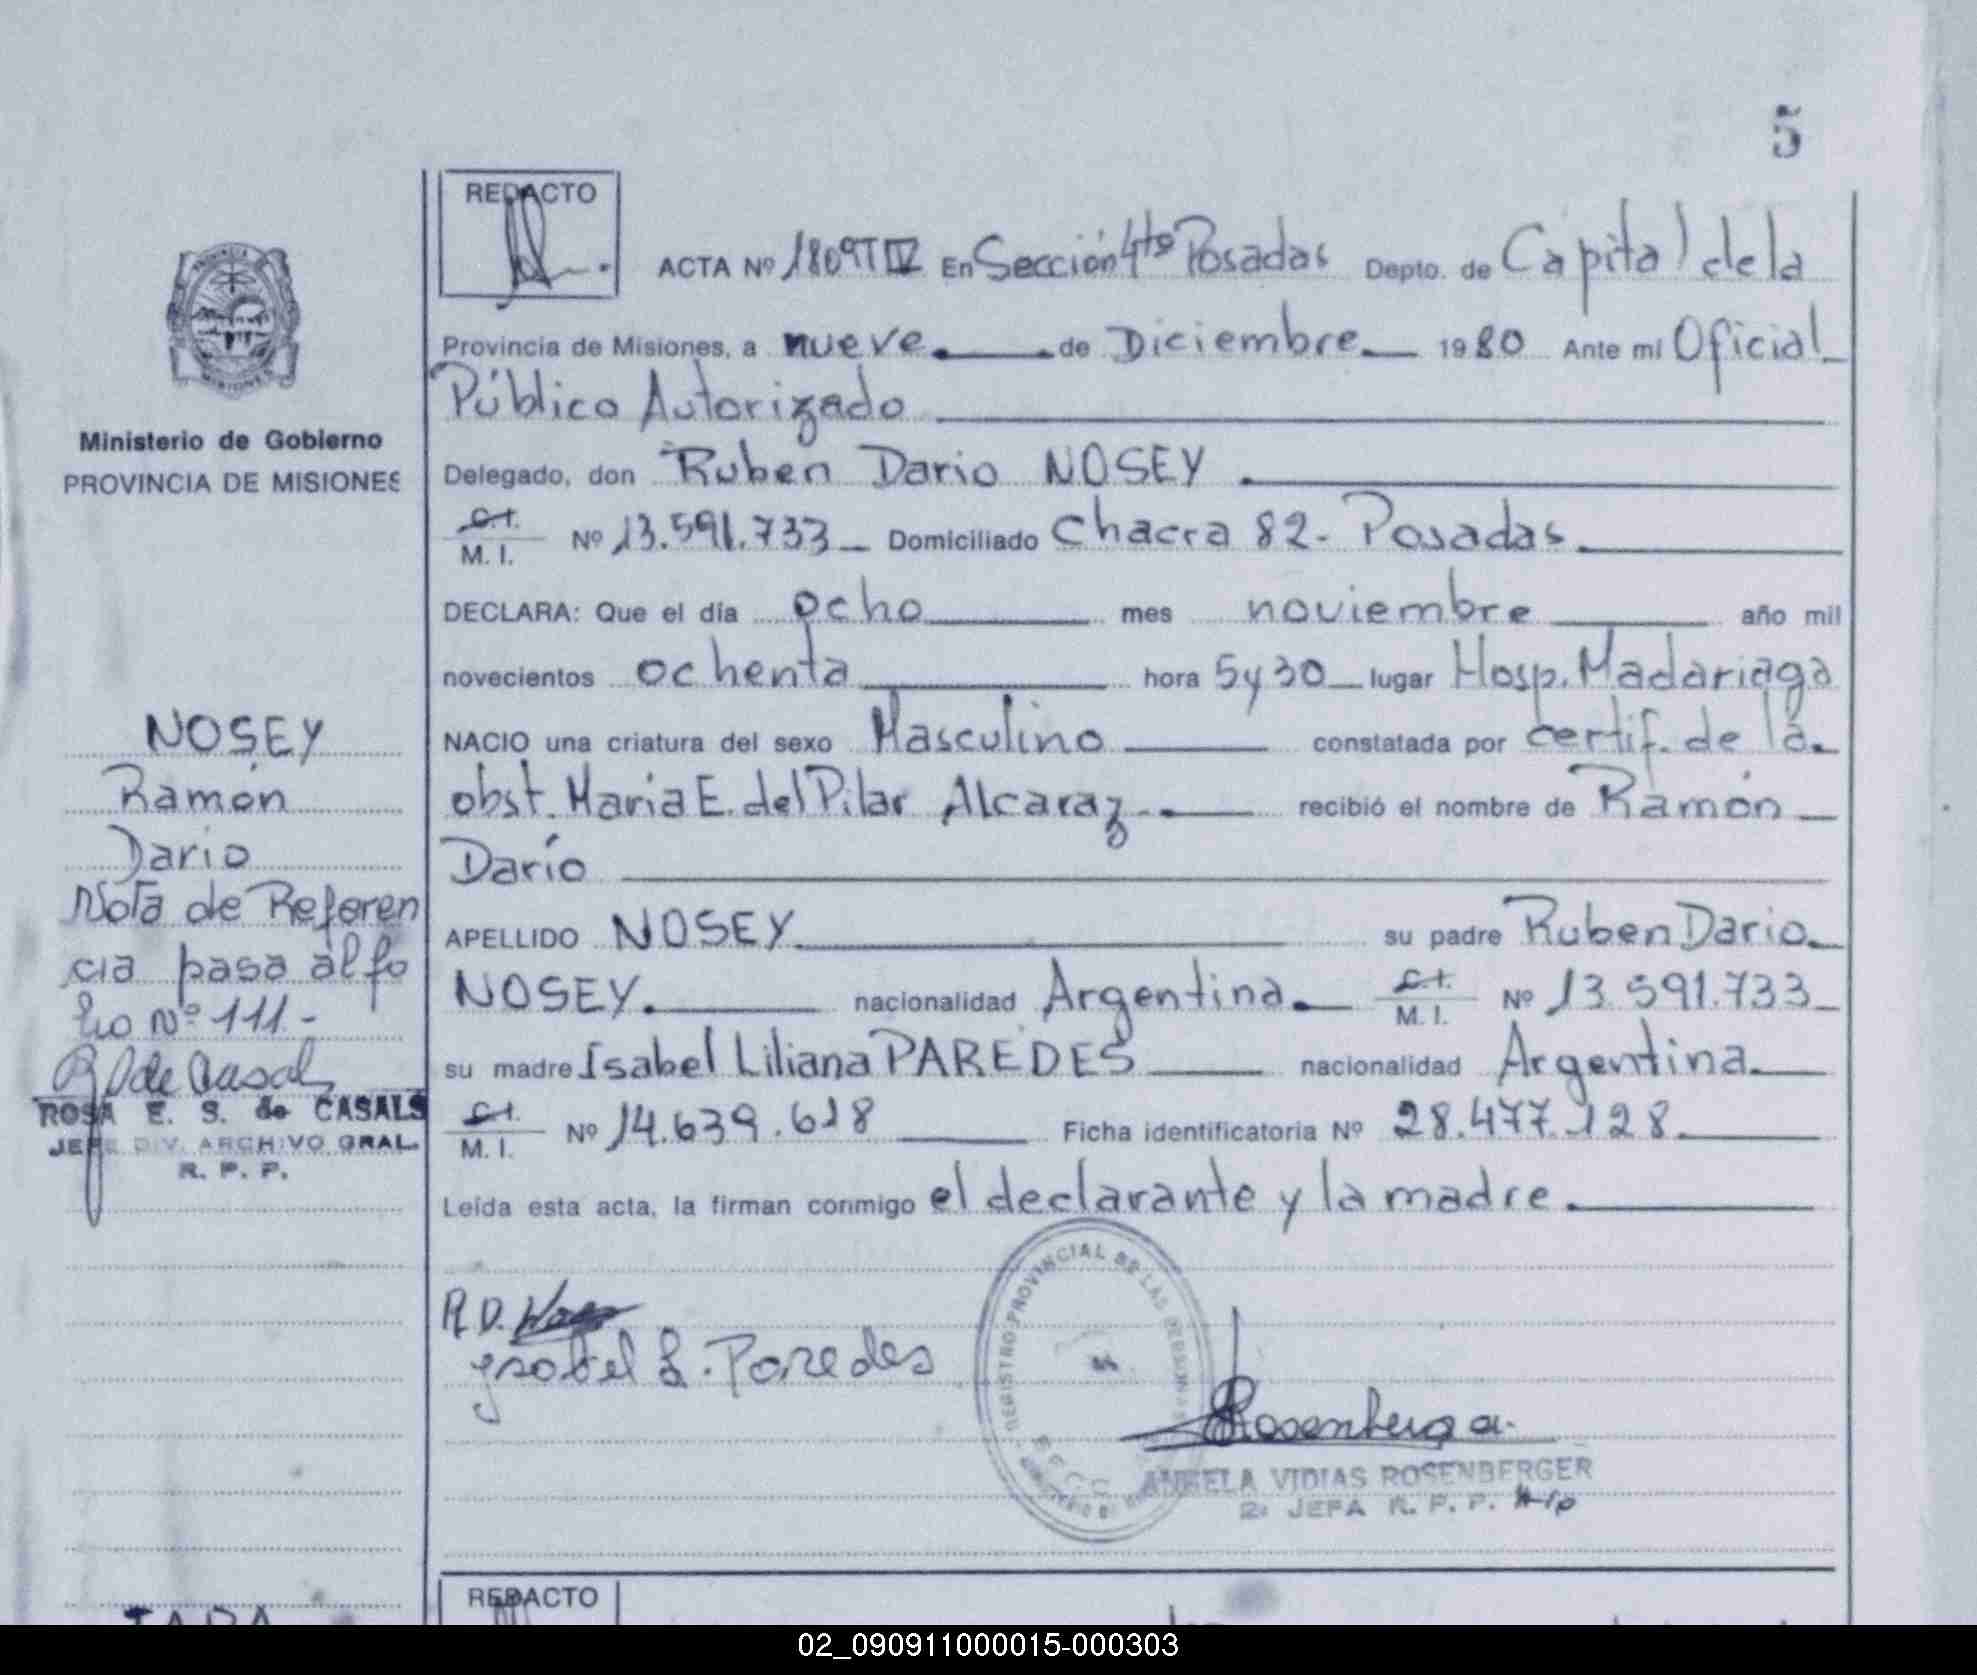 5
REDACTO
ACTA Nº 1809 T IV En Sección 4ta Posadas Depto. de Capital de la
Provincia de Misiones, a nueve de Diciembre 1980 Ante mi Oficial
Público Autorizado
Delegado, don Ruben Dario NOSEY
C.I. M. I. Nº 13.591.733 Domiciliado Chacra 82 - Posadas
DECLARA: Que el día ocho mes noviembre año mil
novecientos ochenta hora 5 y 30 lugar Hosp. Madariaga
NACIO una criatura del sexo Masculino constatada por certif. de la
obst. Maria E. del Pilar Alcaraz recibió el nombre de Ramón
Darío
APELLIDO NOSEY su padre Ruben Dario
NOSEY. nacionalidad Argentina C.I. M. I. Nº 13.591.733
su madre Isabel Liliana PAREDES nacionalidad Argentina
C.I. M. I. Nº 14.639.618 Ficha identificatoria Nº 28.477.128
Leída esta acta, la firman conmigo el declarante y la madre
R.D.
Ysabel L. Paredes
ANGELA VIDIAS ROSENBERGER
JEFA R. P. P.
REGISTRO PROVINCIAL DE LAS PERSONAS
PROVINCIA
MISIONES
Ministerio de Gobierno
PROVINCIA DE MISIONES
NOSEY
Ramón
Dario
Nota de Referen
cia pasa al fo
lio Nº 111 -
ROSA E. S. de CASALS
JEFE DIV. ARCHIVO GRAL.
R. P. P.
REDACTO
02_090911000015-000303